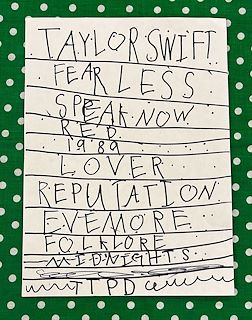 TAYLOR SWIFT
FEARLESS
SPEAK NOW
RED
1989
LOVER
REPUTATION
EVEMORE
FOLKLORE
MIDNIGHTS
TTPD